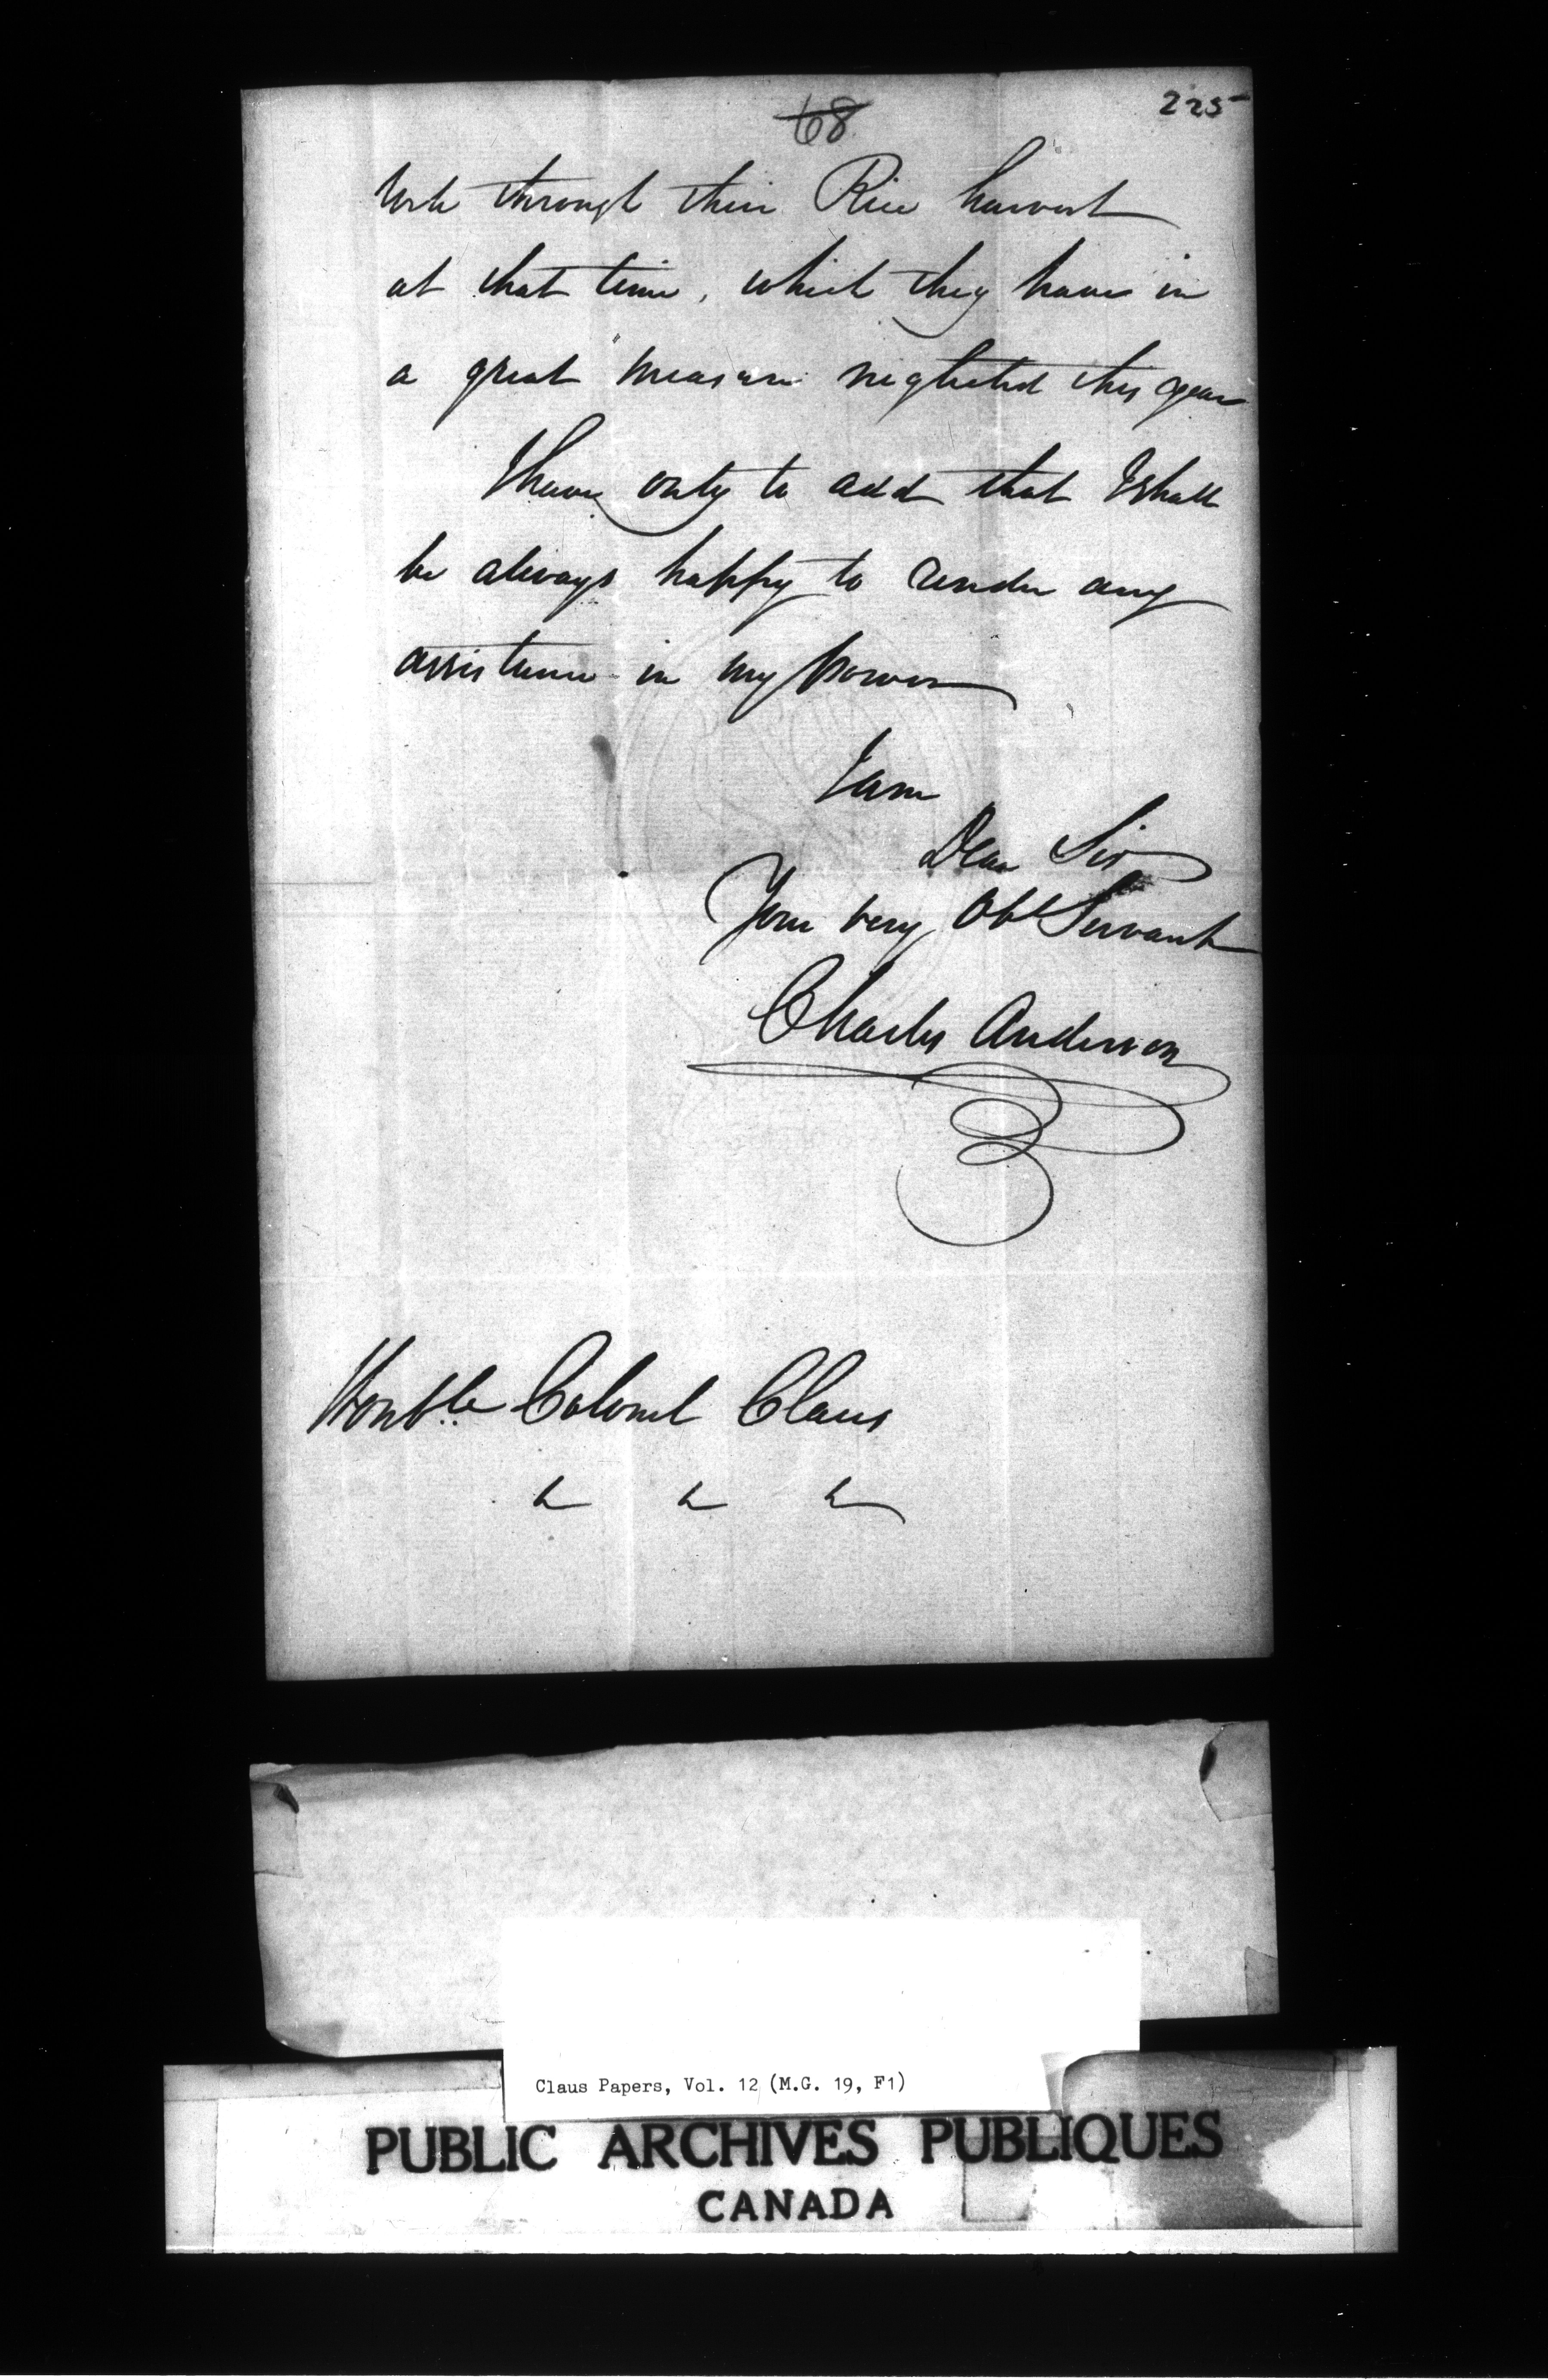 68
225
through their Rice harvest
at that time, which they have in
a great measure neglected this year
I have only to add that I shall
be always happy to render any
assistance in my power
I am
Dear Sir
Your very Obt Servant
Charles Anderson
Honble Colonel Claus
&c &c &c
Claus Papers, Vol. 12 (M.G. 19, F1)
PUBLIC ARCHIVES PUBLIQUES
CANADA